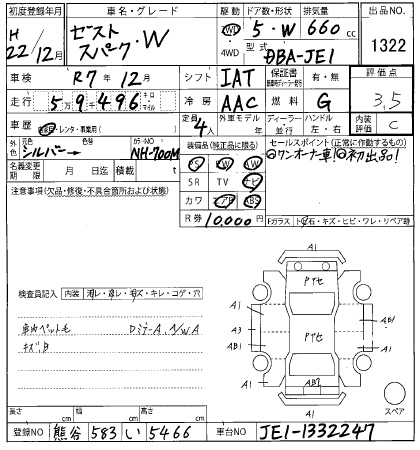 初度登録年月 車名・グレード 駆動 ドア数・形状 排気量 出品NO.
H 22/12月 ゼスト スパーク・W 2WD 4WD 5・W 660 cc 1322
型式 DBA-JE1
車検 R7年12月 シフト IAT 保証書 有・無 評価点
走行 5万9千496 キロ マイル 冷房 AAC 燃料 G 3.5
車歴 自家用・レンタ・事業用( ) 定員 4人 外車モデル 年 ディーラー 並行 ハンドル 左・右 内装 評価 C
外色 元色 シルバー→ 色替 カラーNO NH-700M 装備品(純正品に限る) セールスポイント(正常に作動するもの)
名義変更期限 月 日 積載 t PS AW PW ◎ワンオーナー車!◎初出品!
注意事項(欠品・修復・不具合箇所および状態) SR TV ナビ
カワ エアB ABS
R券 10,000円 Fガラス ト石・キズ・ヒビ・ワレ・リペア跡
A1
検査員記入 内装 汚レ・凛レ・キズ・キレ・コゲ・穴 Pﾃｾ
車内ペット毛 DミラーA, A/W A A1 A3 AB1 Pﾃｾ AB1 A1
キズ有 AB2
A1
スペア
長さ cm 幅 cm 高さ cm
登録NO 熊谷 583 い 5466 車台NO JE1-1332247